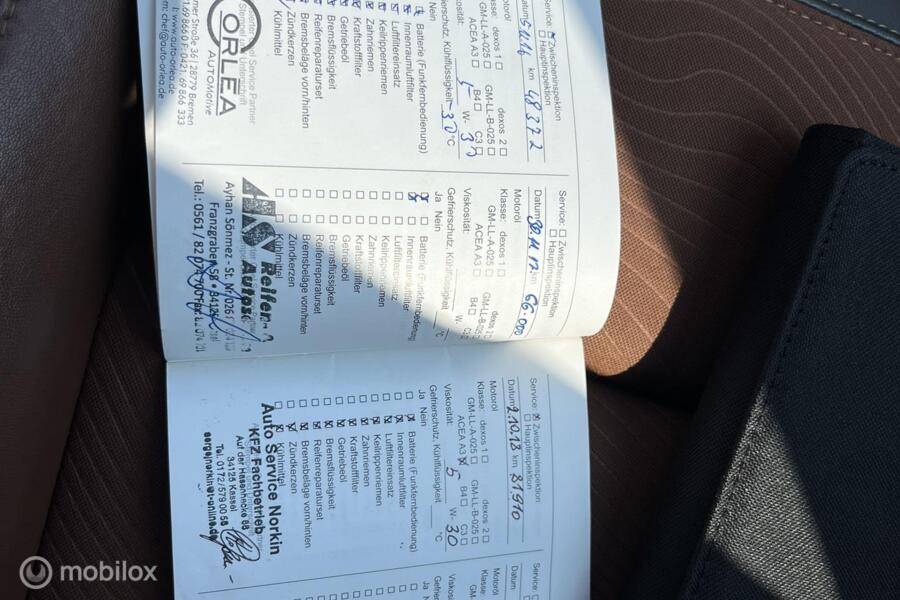 Service: ☒ Zwischeninspektion
☐ Hauptinspektion
km 48372
Motoröl
Klasse: dexos 1 ☐ dexos 2 ☐
GM-LL-A-025 ☐ GM-LL-B-025 ☐
ACEA A3 ☐ B4 ☐ C3 ☐
Viskosität: 5 W- 30
Gefrierschutz, Kühlflüssigkeit -30 °C
Nein
Batterie (Funkfernbedienung)
Innenraumluftfilter
Luftfiltereinsatz
Keilrippenriemen
Zahnriemen
Kraftstofffilter
Getriebeöl
Bremsflüssigkeit
Reifenreparaturset
Bremsbeläge vorn/hinten
Zündkerzen
Kühlmittel
Service Partner
Stempel und Unterschrift
ORLEA
AUTOMotive
28779 Bremen
F: 0421. 69 866 333
www.auto-orlea.de
Service: ☐ Zwischeninspektion
☐ Hauptinspektion
Datum 30.11.17 km 66.000
Motoröl
Klasse: dexos 1 ☐ dexos 2 ☐
GM-LL-A-025 ☐ GM-LL-B-025
ACEA A3 ☐ B4 ☐
Viskosität:
Gefrierschutz, Kühlflüssigkeit °C
Ja Nein
Batterie (Funkfernbedienung
Innenraumluftfilter
Luftfiltereinsatz
Keilrippenriemen
Zahnriemen
Kraftstofffilter
Getriebeöl
Bremsflüssigkeit
Reifenreparaturset
Bremsbeläge vorn/hinten
Zündkerzen
Kühlmittel
Reifen
Ayhan Sönmez - St. Nr 026
Franzgraben 58 • 3412
Tel.: 0561 / 82
Service: ☒ Zwischeninspektion
☐ Hauptinspektion
Datum 2.10.18 km 81910
Motoröl
Klasse: dexos 1 ☐ dexos 2 ☐
GM-LL-A-025 ☐ GM-LL-B-025 ☐
ACEA A3 ☒ B4 ☐ C3 ☐
Viskosität 5 W- 30
Gefrierschutz, Kühlflüssigkeit °C
Ja Nein
Batterie (Funkfernbedienung)
Innenraumluftfilter
Luftfiltereinsatz
Keilrippenriemen
Zahnriemen
Kraftstofffilter
Getriebeöl
Bremsflüssigkeit
Reifenreparaturset
Bremsbeläge vorn/hinten
Zündkerzen
Kühlmittel
Auto Service Norkin
KFZ Fachbetrieb
34125 Kassel
Tel. 0172/579 00 58
Service:
Datum
Motoröl
Klasse:
Viskosität
Ja
mobilox